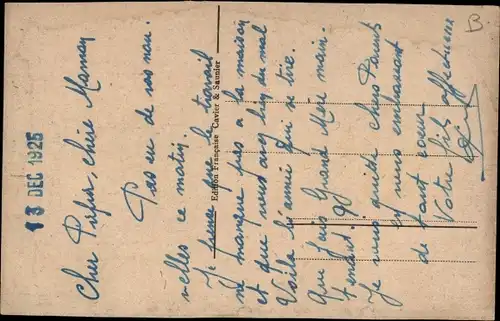 13 DEC 1925
Cher chère Maman
Pas eu de vos nou-
velles ce matin.
Je pense que le travail
ne manque pas à la maison
et que vous avez bien du mal
Voilà l'année qui se tire.
Que fais Grand Mère main-
tenant.
Je vous quitte chers Parents
en vous embrassant
de tout cœur
Votre fils affectueux
Edition Française Cavier & Saunier
B.